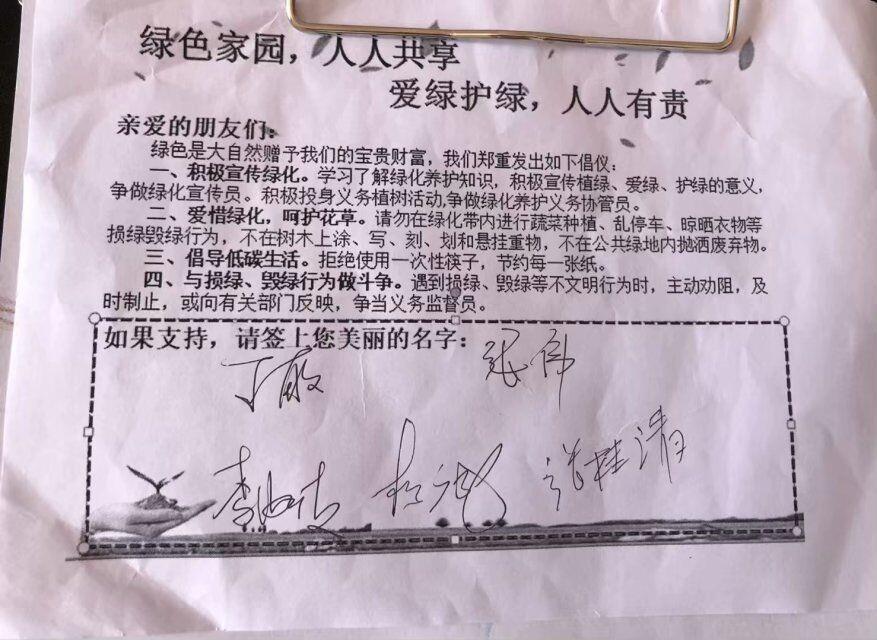 绿色家园，人人共享
爱绿护绿，人人有责
亲爱的朋友们：
绿色是大自然赠予我们的宝贵财富，我们郑重发出如下倡仪：
一、积极宣传绿化。学习了解绿化养护知识，积极宣传植绿、爱绿、护绿的意义，
争做绿化宣传员。积极投身义务植树活动,争做绿化养护义务协管员。
二、爱惜绿化，呵护花草。请勿在绿化带内进行蔬菜种植、乱停车、晾晒衣物等
损绿毁绿行为，不在树木上涂、写、刻、划和悬挂重物，不在公共绿地内抛洒废弃物。
三、倡导低碳生活。拒绝使用一次性筷子，节约每一张纸。
四、与损绿、毁绿行为做斗争。遇到损绿、毁绿等不文明行为时，主动劝阻，及
时制止，或向有关部门反映，争当义务监督员。
如果支持，请签上您美丽的名字：
丁敏 张伟
张桂清